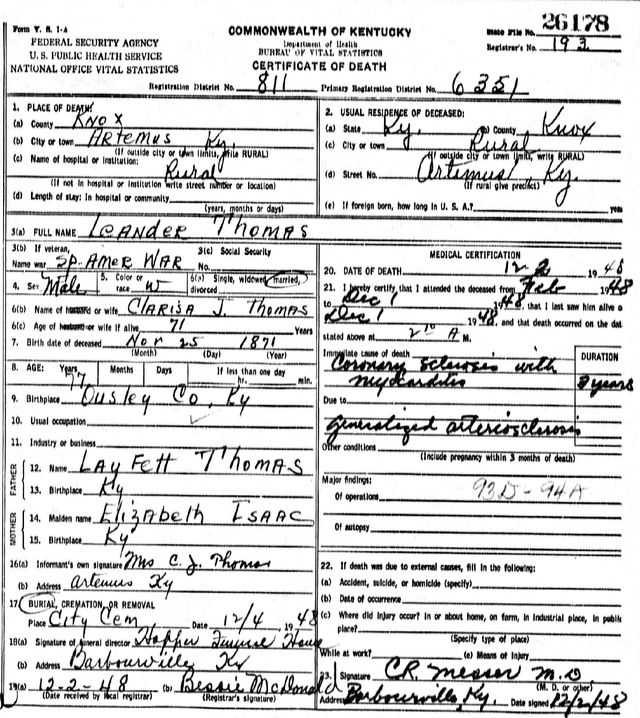 Form V. S. 1-A
FEDERAL SECURITY AGENCY
U. S. PUBLIC HEALTH SERVICE
NATIONAL OFFICE VITAL STATISTICS
COMMONWEALTH OF KENTUCKY
Department of Health
BUREAU OF VITAL STATISTICS
CERTIFICATE OF DEATH
State File No. 26178
Registrar's No. 193
Registration District No. 811 Primary Registration District No. 6351
1. PLACE OF DEATH:
(a) County KNOX
(b) City or town ARTEMUS Ky.
(If outside city or town limits, write RURAL)
(c) Name of hospital or institution:
Rural
(If not in hospital or institution write street number or location)
(d) Length of stay: In hospital or community
(years, months or days)
2. USUAL RESIDENCE OF DECEASED:
(a) State Ky. (b) County Knox
(c) City or town Rural
(If outside city or town limits, write RURAL)
(d) Street No. Artemus, Ky.
(If rural give precinct)
(e) If foreign born, how long in U. S. A.? years
3(a) FULL NAME LEANDER THOMAS
3(b) If veteran,
Name war SP. AMER WAR
3(c) Social Security
No.
4. Sex Male 5. Color or race W 6(a) Single, widowed, married, divorced
6(b) Name of husband or wife CLARISA J. THOMAS
6(c) Age of husband or wife if alive 71 Years
7. Birth date of deceased Nov 25 1871
(Month) (Day) (Year)
8. AGE: Years 77 Months Days If less than one day
hr. min.
9. Birthplace Ousley Co, Ky
10. Usual occupation
11. Industry or business
FATHER
12. Name LAY FETT THOMAS
13. Birthplace Ky
MOTHER
14. Maiden name ELIZABETH ISAAC
15. Birthplace Ky
16(a) Informant's own signature Mrs C. J. Thomas
(b) Address Artemus Ky
17 BURIAL, CREMATION, OR REMOVAL
Place City Cem. Date 12/4 1948
18(a) Signature of funeral director Hopper Funeral House
(b) Address Barbourville Ky
19(a) 12-2-48 (b) Bessie McDonald
(Date received by local registrar) (Registrar's signature)
MEDICAL CERTIFICATION
20. DATE OF DEATH 12-2 1948
21. I hereby certify that I attended the deceased from Feb 1948
to Dec 1 1948, that I last saw him alive o
Dec 1 1948, and that death occurred on the dat
stated above at 2 A M.
Immediate cause of death Coronary sclerosis with
myocarditis
DURATION
years
Due to
Generalized arteriosclerosis
Other conditions
(Include pregnancy within 3 months of death)
Major findings:
Of operations 93D-94A
Of autopsy
22. If death was due to external causes, fill in the following:
(a) Accident, suicide, or homicide (specify)
(b) Date of occurrence
(c) Where did injury occur? In or about home, on farm, in industrial place, in public place?
(Specify type of place)
While at work? (e) Means of injury
23. Signature C.R. Messer M.D
(M. D. or other)
Address Barbourville, Ky. Date signed 12/2/48